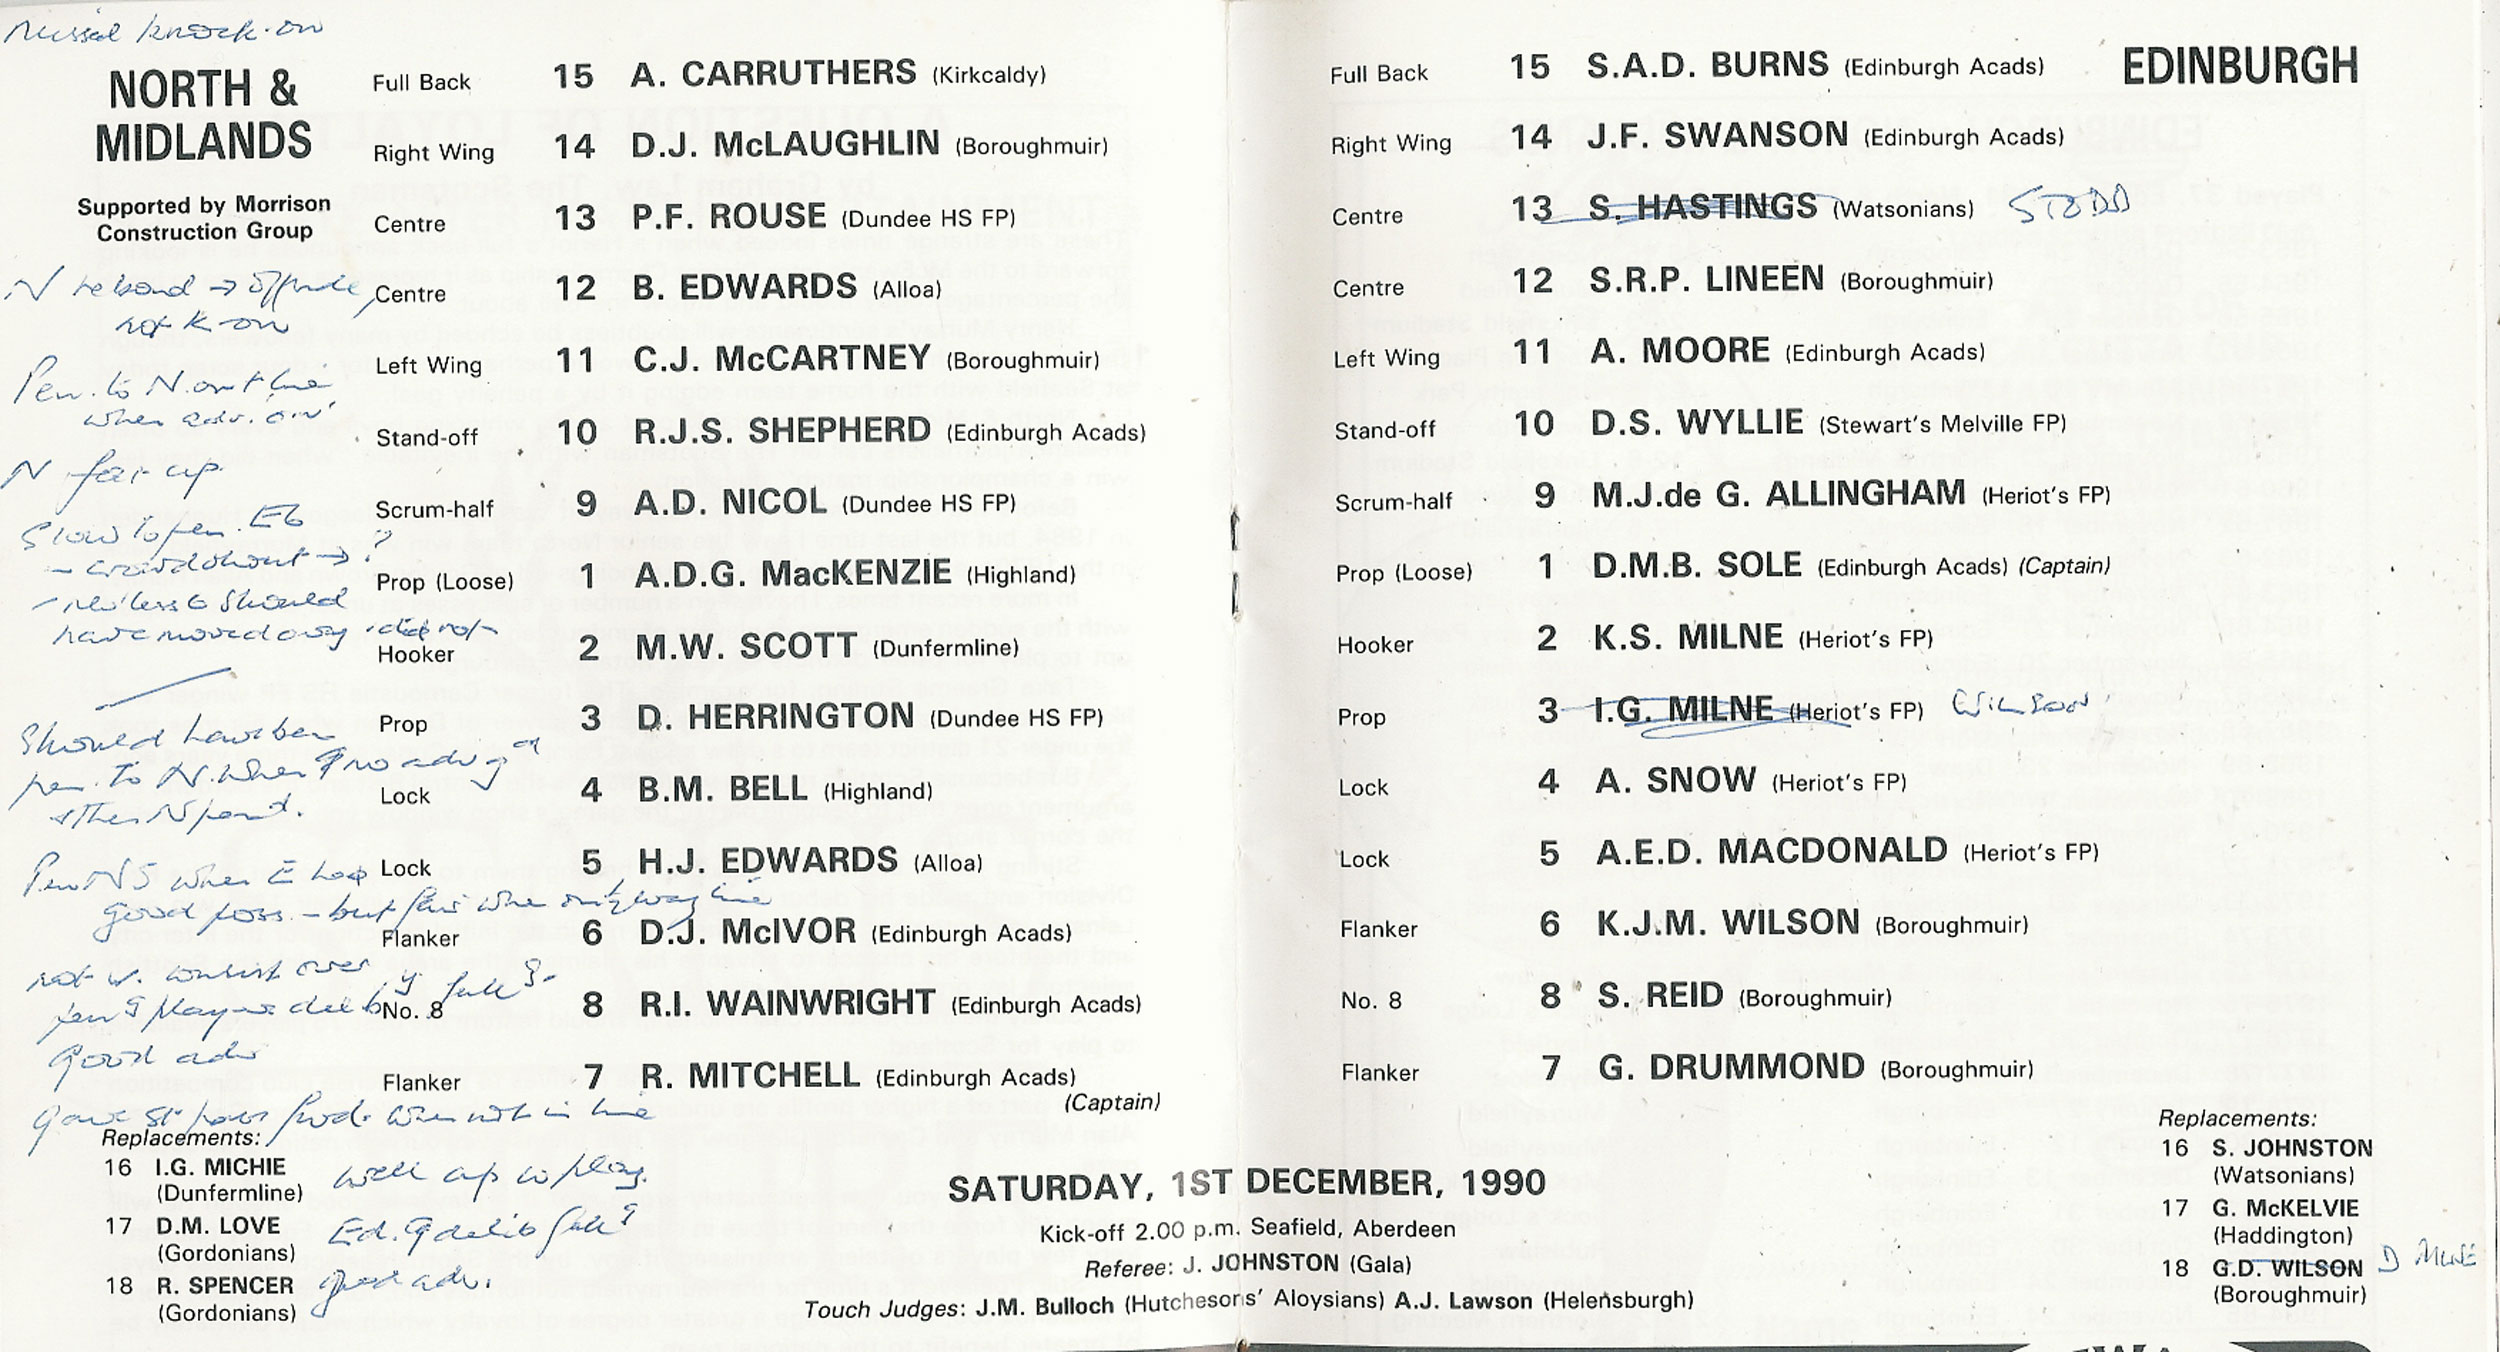 missed knock-on
NORTH &
MIDLANDS
Supported by Morrison
Construction Group
Full Back 15 A. CARRUTHERS (Kirkcaldy)
Right Wing 14 D.J. McLAUGHLIN (Boroughmuir)
Centre 13 P.F. ROUSE (Dundee HS FP)
Centre 12 B. EDWARDS (Alloa)
Left Wing 11 C.J. McCARTNEY (Boroughmuir)
Stand-off 10 R.J.S. SHEPHERD (Edinburgh Acads)
Scrum-half 9 A.D. NICOL (Dundee HS FP)
Prop (Loose) 1 A.D.G. MacKENZIE (Highland)
Hooker 2 M.W. SCOTT (Dunfermline)
Prop 3 D. HERRINGTON (Dundee HS FP)
Lock 4 B.M. BELL (Highland)
Lock 5 H.J. EDWARDS (Alloa)
Flanker 6 D.J. McIVOR (Edinburgh Acads)
No. 8 8 R.I. WAINWRIGHT (Edinburgh Acads)
Flanker 7 R. MITCHELL (Edinburgh Acads)
(Captain)
N rebound → offside,
not K-on
Pen. to N. on t line
when adv. on
N far up
Slow to pen. Ed
- crowd shout → ?
should
have moved away did not
Should have been
pen. to N. when no adv
other N
Pen N 5 when E had
good poss. - but fair when
not over
good adv
when not in line
Replacements:
16 I.G. MICHIE
(Dunfermline)
17 D.M. LOVE
(Gordonians)
18 R. SPENCER
(Gordonians)
well up w play.
Ed. delib
good adv.
EDINBURGH
Full Back 15 S.A.D. BURNS (Edinburgh Acads)
Right Wing 14 J.F. SWANSON (Edinburgh Acads)
Centre 13 S. HASTINGS (Watsonians) STODD
Centre 12 S.R.P. LINEEN (Boroughmuir)
Left Wing 11 A. MOORE (Edinburgh Acads)
Stand-off 10 D.S. WYLLIE (Stewart's Melville FP)
Scrum-half 9 M.J.de G. ALLINGHAM (Heriot's FP)
Prop (Loose) 1 D.M.B. SOLE (Edinburgh Acads) (Captain)
Hooker 2 K.S. MILNE (Heriot's FP)
Prop 3 I.G. MILNE (Heriot's FP) WILSON
Lock 4 A. SNOW (Heriot's FP)
Lock 5 A.E.D. MACDONALD (Heriot's FP)
Flanker 6 K.J.M. WILSON (Boroughmuir)
No. 8 8 S. REID (Boroughmuir)
Flanker 7 G. DRUMMOND (Boroughmuir)
Replacements:
16 S. JOHNSTON
(Watsonians)
17 G. McKELVIE
(Haddington)
18 G.D. WILSON D MILNE
(Boroughmuir)
SATURDAY, 1ST DECEMBER, 1990
Kick-off 2.00 p.m. Seafield, Aberdeen
Referee: J. JOHNSTON (Gala)
Touch Judges: J.M. Bulloch (Hutchesons' Aloysians) A.J. Lawson (Helensburgh)